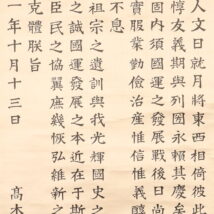 人文日就月將東西相倚彼此
惇友義期與列國永賴其慶
固內須國運之發展戰後日尚
實服業勤儉治產惟信惟義醇
不息
祖宗之遺訓與我光輝國史之
之誠國運發展之本近在于斯
臣民之協翼庶幾恢弘維新之
克體朕旨
一年十月十三日 高本